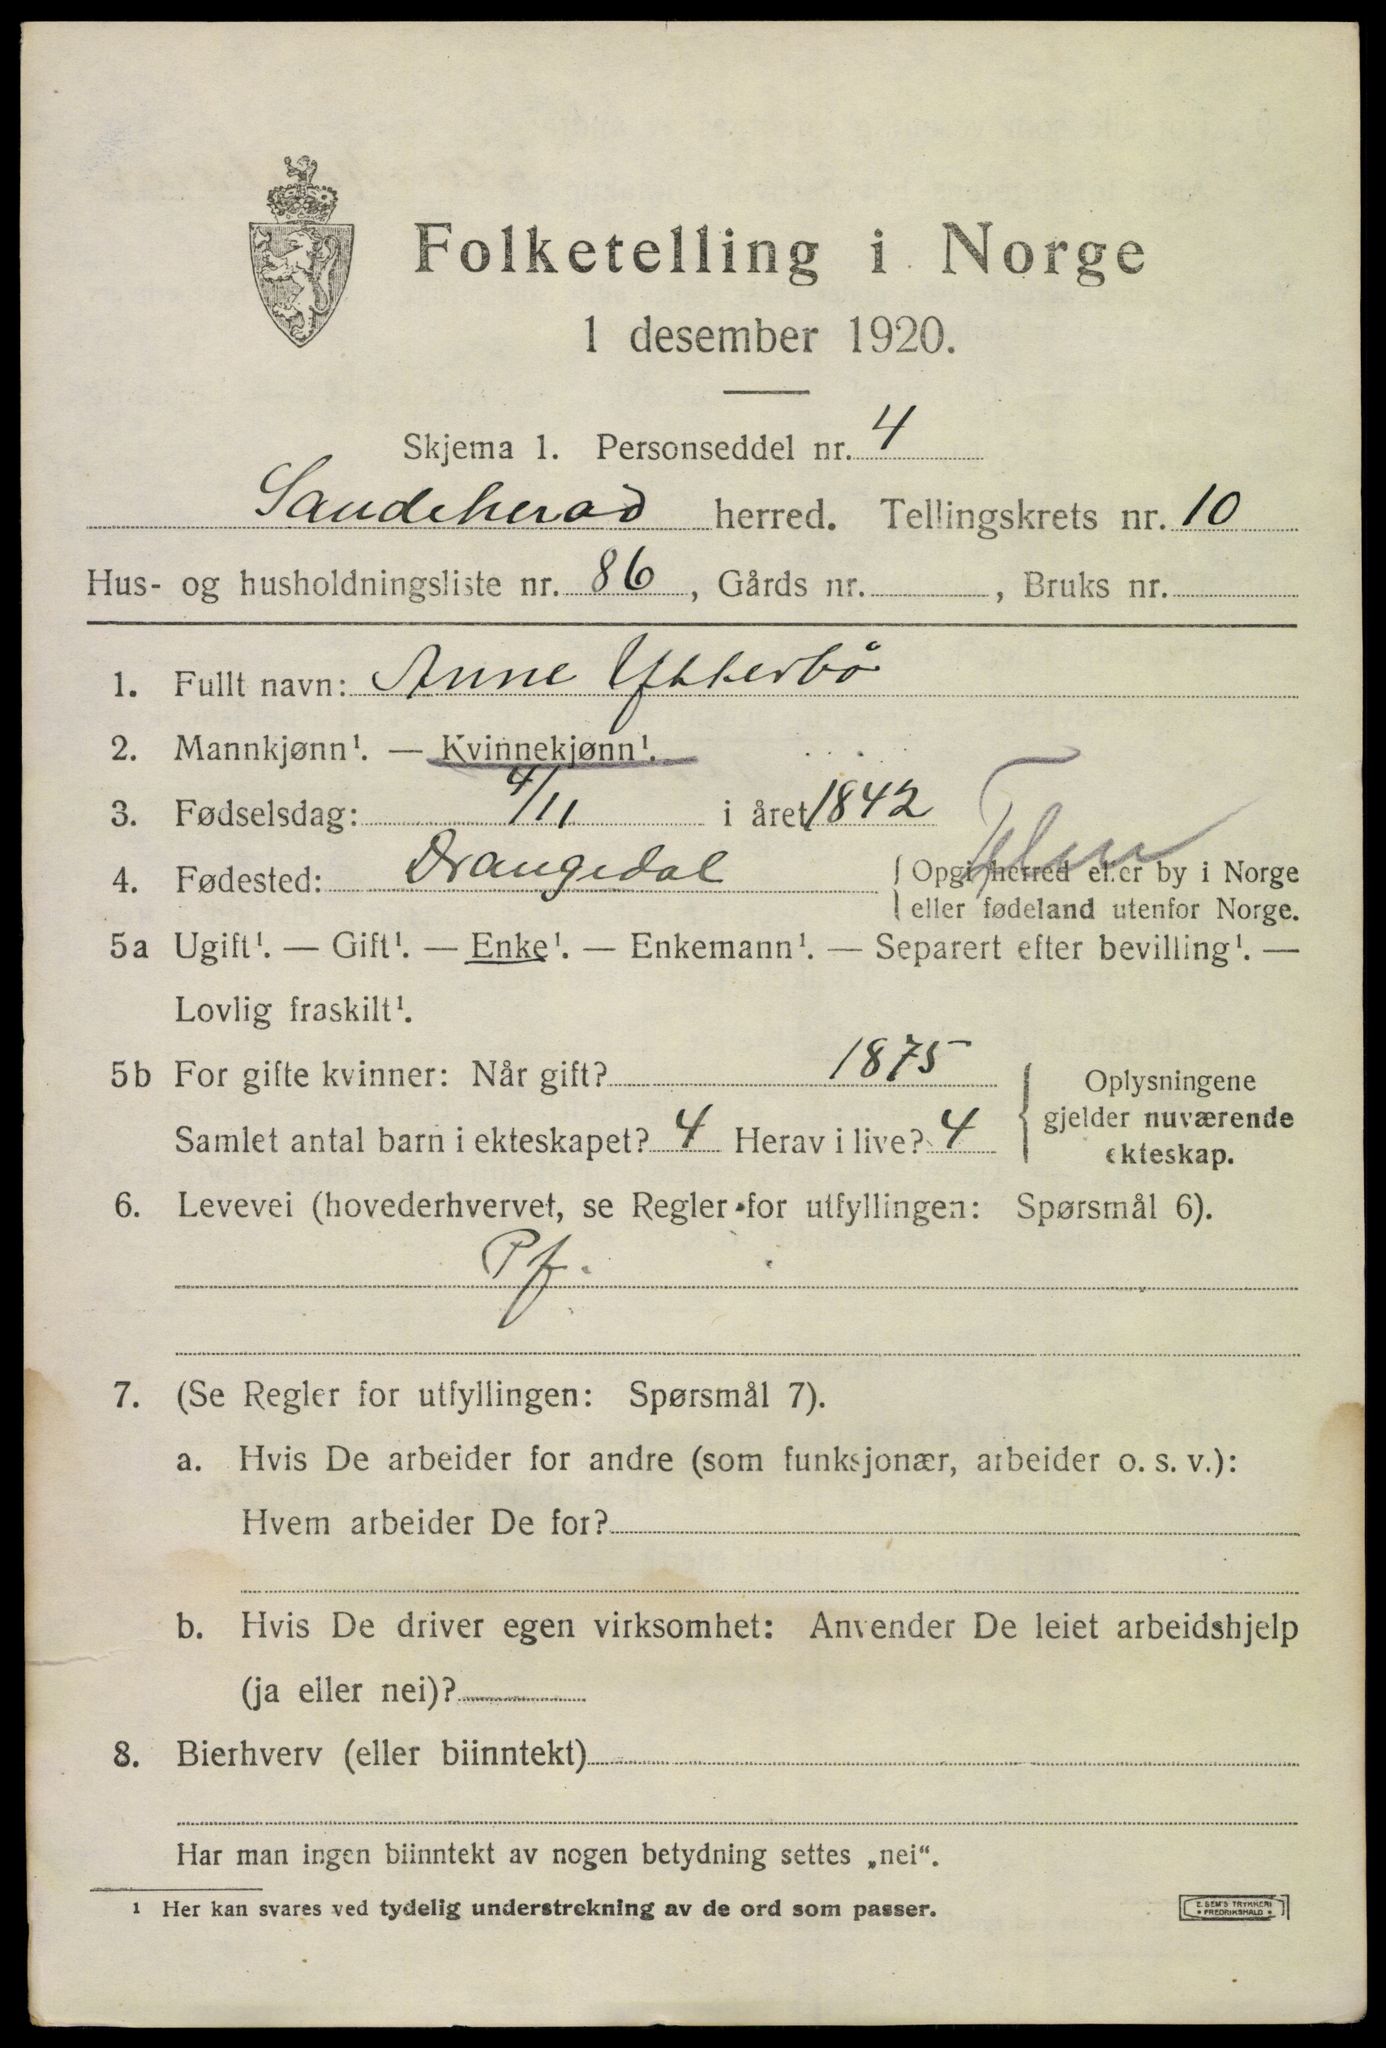 Folketelling i Norge
1 desember 1920.
Skjema 1. Personseddel nr. 4
Sandeherad herred. Tellingskrets nr. 10
Hus- og husholdningsliste nr. 86, Gårds nr. , Bruks nr.
1. Fullt navn: Anne Ytterbö
2. Mannkjønn¹. — Kvinnekjønn¹.
3. Fødselsdag: 4/11 i året 1842
4. Fødested: Drangedal { Opgi herred eller by i Norge
{ eller fødeland utenfor Norge.
5a Ugift¹. — Gift¹. — Enke¹. — Enkemann¹. — Separert efter bevilling¹. —
Lovlig fraskilt¹.
5b For gifte kvinner: Når gift? 1875
Samlet antal barn i ekteskapet? 4 Herav i live? 4
Oplysningene
gjelder nuværende
ekteskap.
6. Levevei (hovederhvervet, se Regler for utfyllingen: Spørsmål 6).
Pf.
7. (Se Regler for utfyllingen: Spørsmål 7).
a. Hvis De arbeider for andre (som funksjonær, arbeider o. s. v.):
Hvem arbeider De for?
b. Hvis De driver egen virksomhet: Anvender De leiet arbeidshjelp
(ja eller nei)?
8. Bierhverv (eller biinntekt)
Har man ingen biinntekt av nogen betydning settes „nei“.
¹ Her kan svares ved tydelig understrekning av de ord som passer.
E. SEM'S TRYKKERI
FREDRIKSHALD